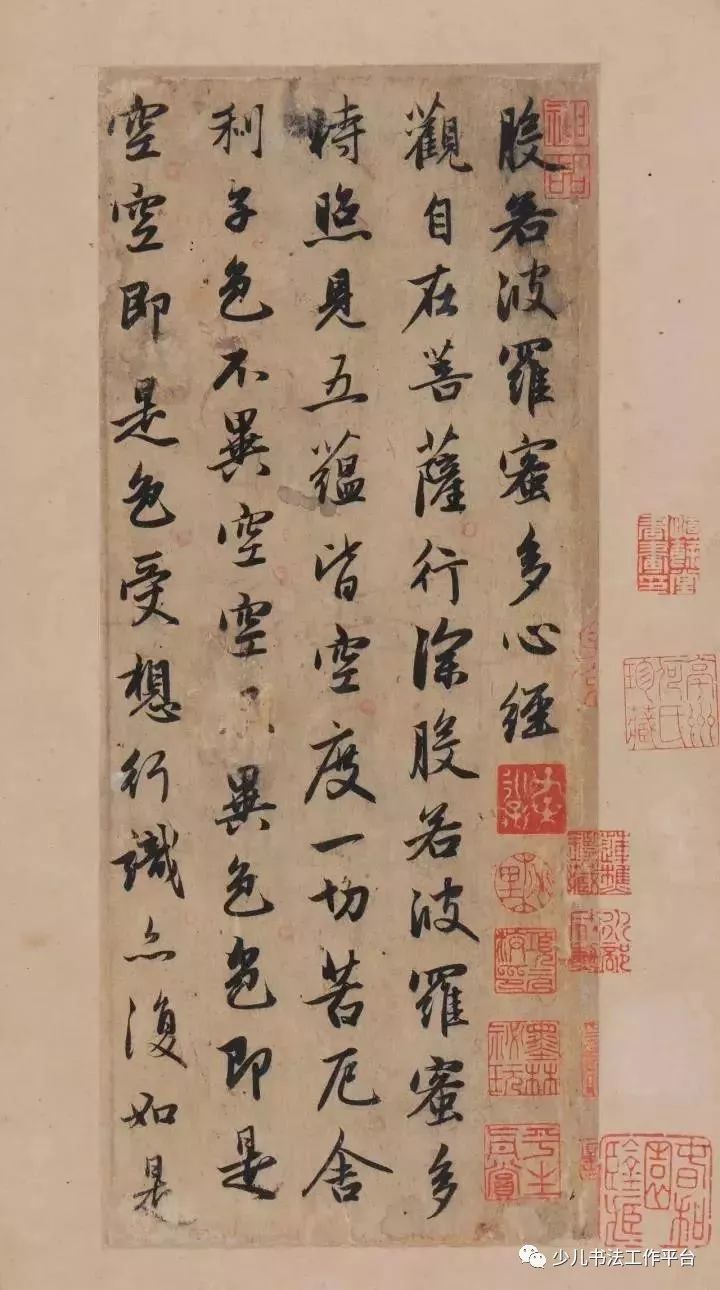 般若波羅蜜多心經
觀自在菩薩行深般若波羅蜜多
時照見五蘊皆空度一切苦厄舍
利子色不異空空不異色色即是
空空即是色受想行識亦復如是
墨林祕玩
平生真賞
少儿书法工作平台